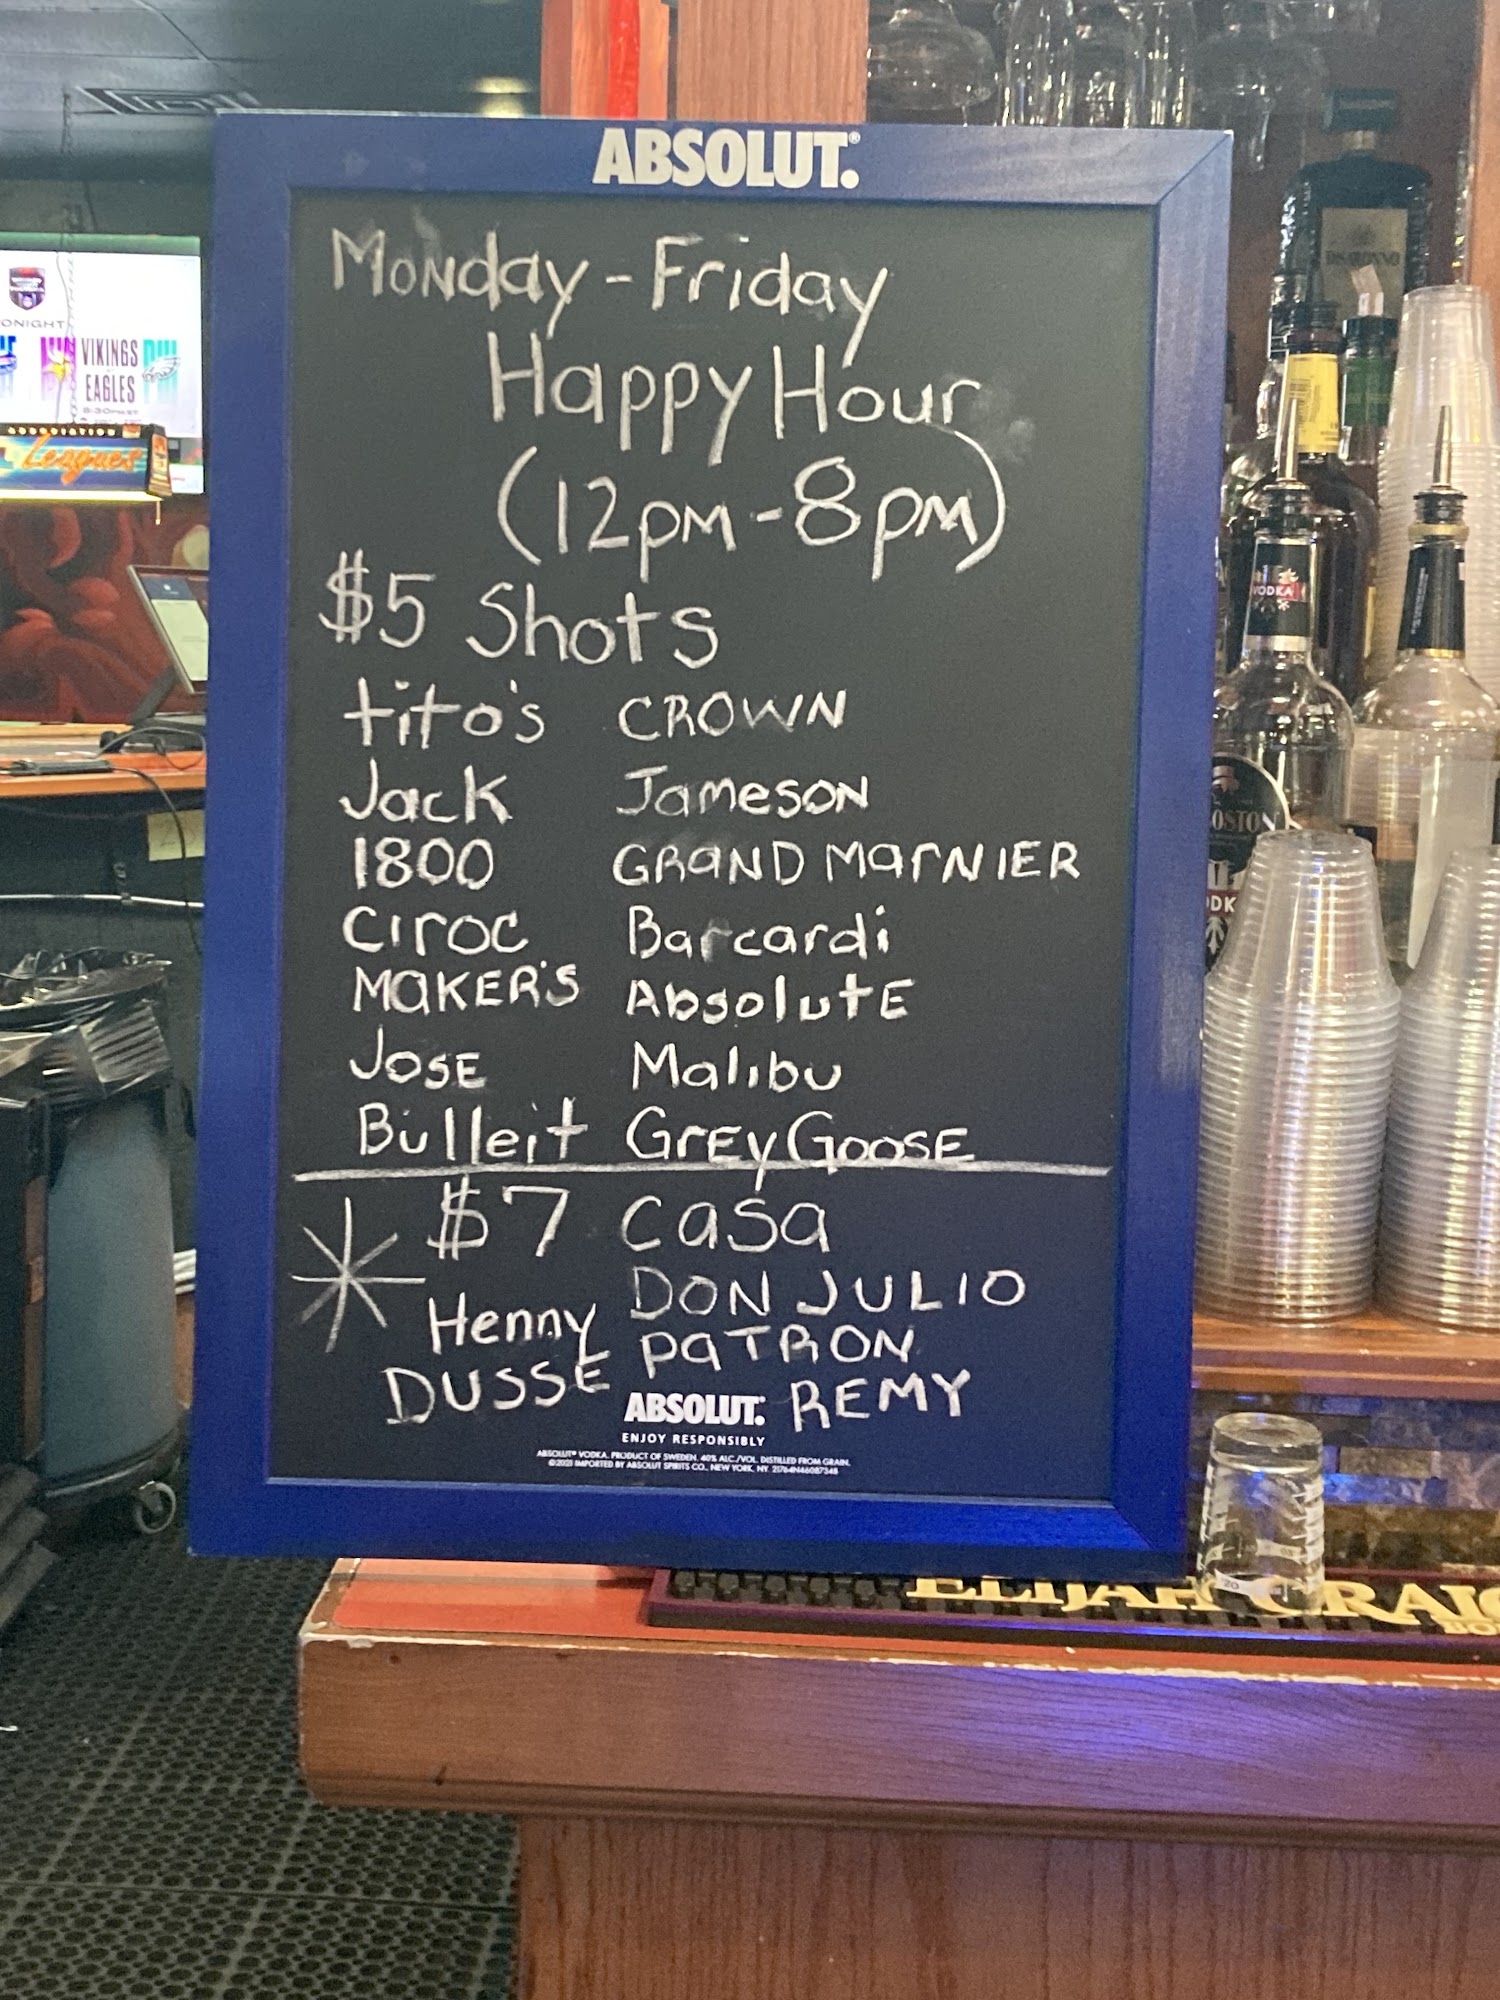 ABSOLUT.
Monday - Friday
Happy Hour
(12pm - 8pm)
$5 Shots
tito's CROWN
Jack Jameson
1800 GRAND MARNIER
Ciroc Barcardi
MAKER'S AbsolutE
JOSE Malibu
Bulleit GREY GOOSE
$7 Casa
Henny DON JULIO
DUSSE PATRON
REMY
ABSOLUT.
ENJOY RESPONSIBLY
ABSOLUT® VODKA. PRODUCT OF SWEDEN. 40% ALC./VOL. DISTILLED FROM GRAIN.
©2021 IMPORTED BY ABSOLUT SPIRITS CO., NEW YORK, NY.
ONIGHT
VIKINGS
EAGLES
Leagues
DISARONNO
VODKA
OSTON
ELIJAH CRAIG